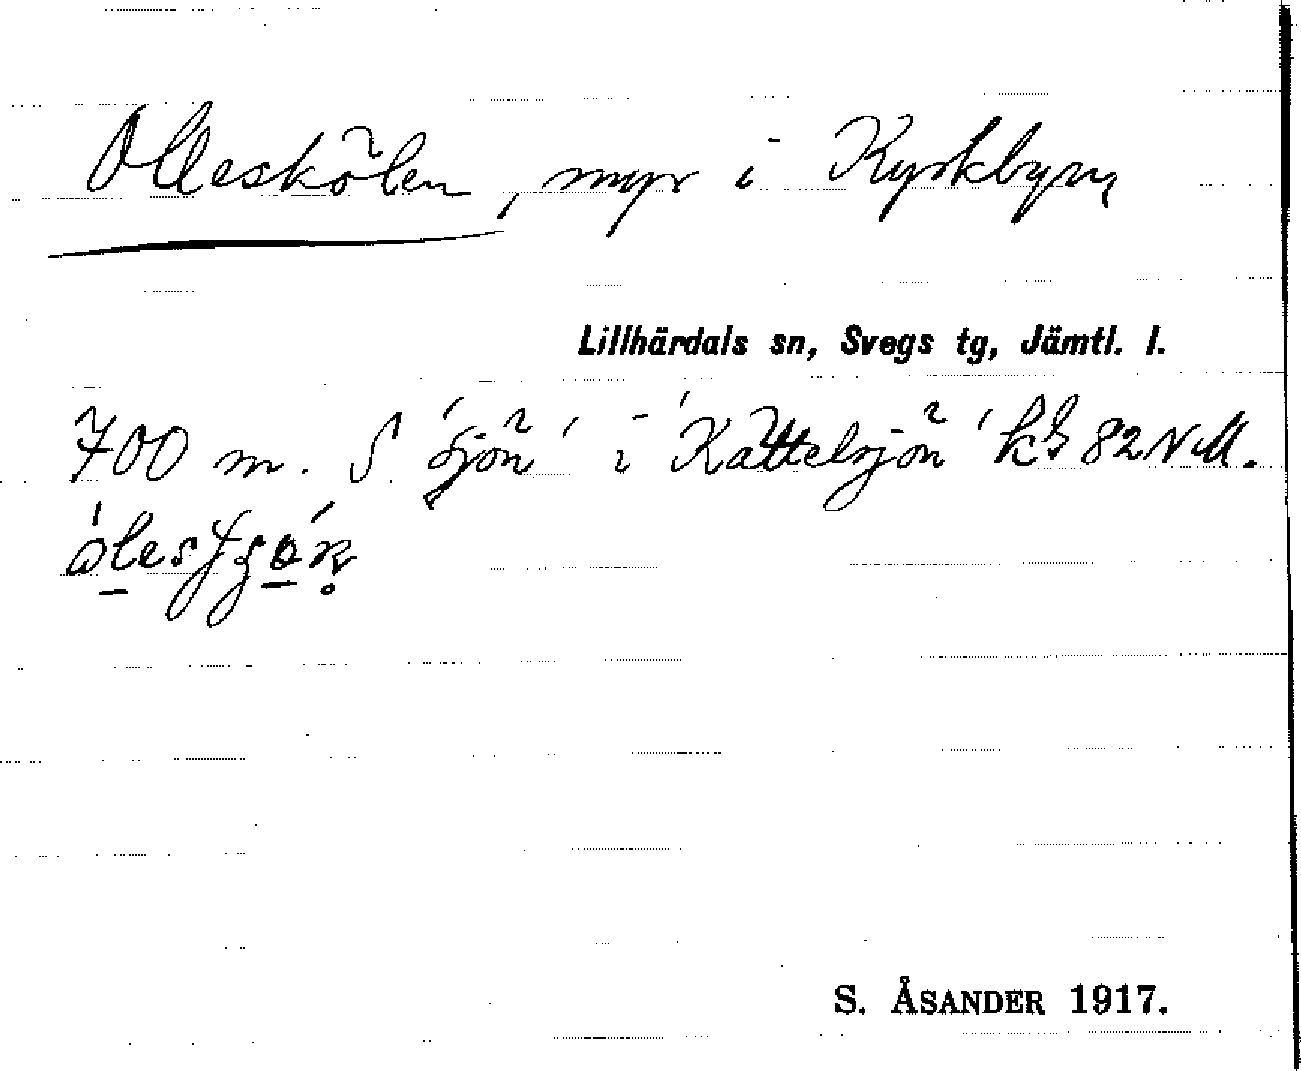 Olleskölen, myr i Kyrkbyn
Lillhärdals sn, Svegs tg, Jämtl. l.
700 m. S 'sjön' i 'Kattelsjön' kbl 82 NV.
S. ÅSANDER 1917.